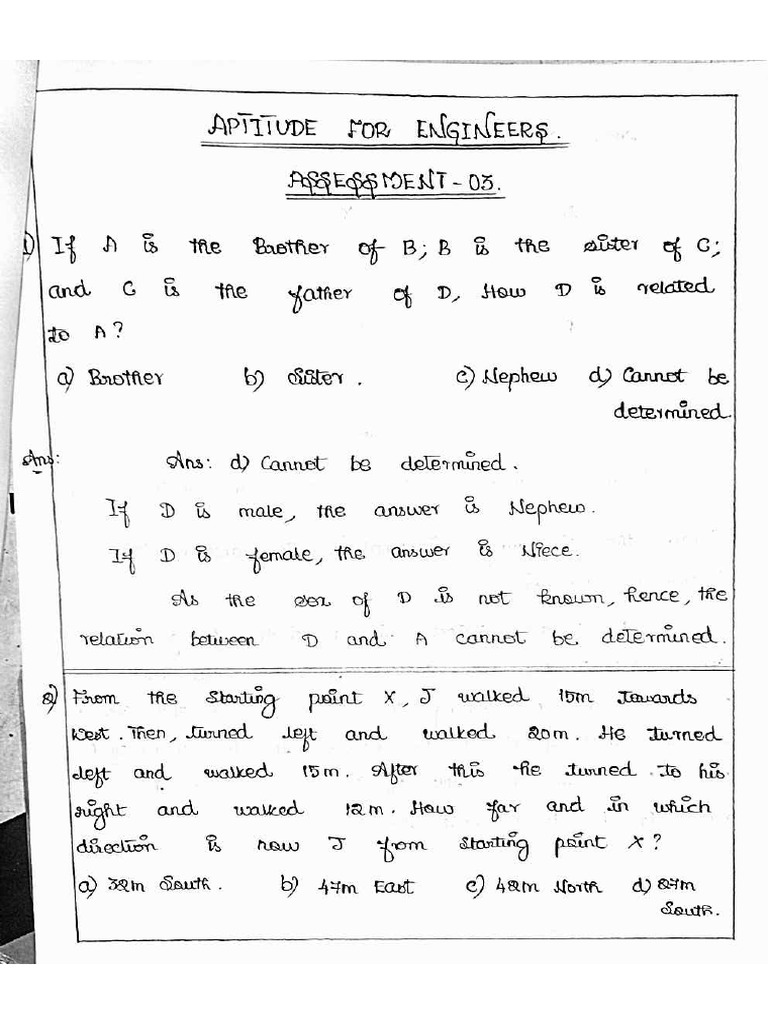 APTITUDE FOR ENGINEERS.
ASSESSMENT-03.
1) If A is the Brother of B; B is the sister of C;
and C is the father of D, How D is related
to A?
a) Brother b) Sister. c) Nephew d) Cannot be
determined.
Ans: Ans: d) Cannot be determined.
If D is male, the answer is Nephew.
If D is female, the answer is Niece.
As the sex of D is not known, hence, the
relation between D and A cannot be determined.
2) From the starting point X, J walked 15m towards
West. Then, turned left and walked 20m. He turned
left and walked 15m. After this he turned to his
right and walked 12m. How far and in which
direction is now J from starting point X?
a) 32m South. b) 47m East c) 42m North d) 27m
South.